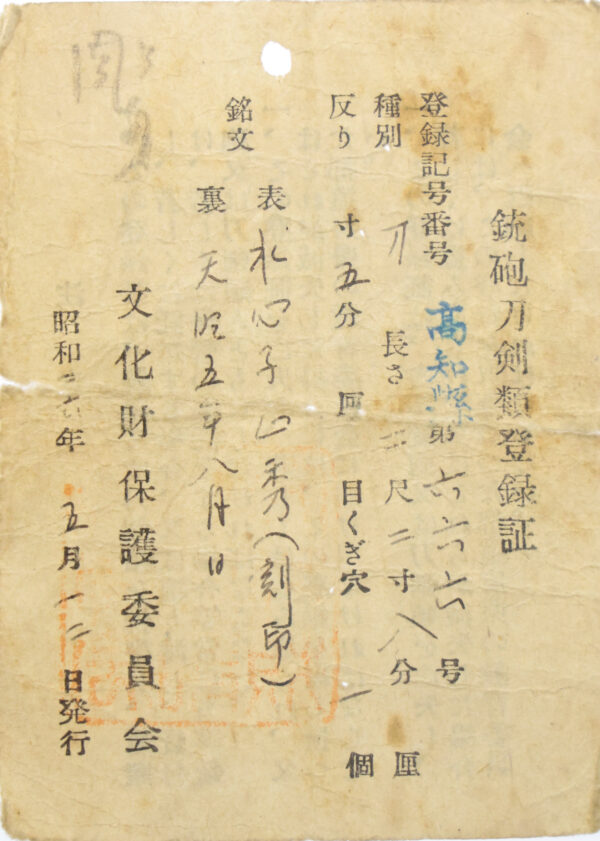 銃砲刀剣類登録証
登録記号番号 高知縣第六六六号
種別 刀 長さ 二尺二寸八分 厘
反り 寸五分 厘 目くぎ穴 一個
銘文
表 水心子正秀(刻印)
裏 天明五年八月日
文化財保護委員会
昭和二六年 五月一二日発行